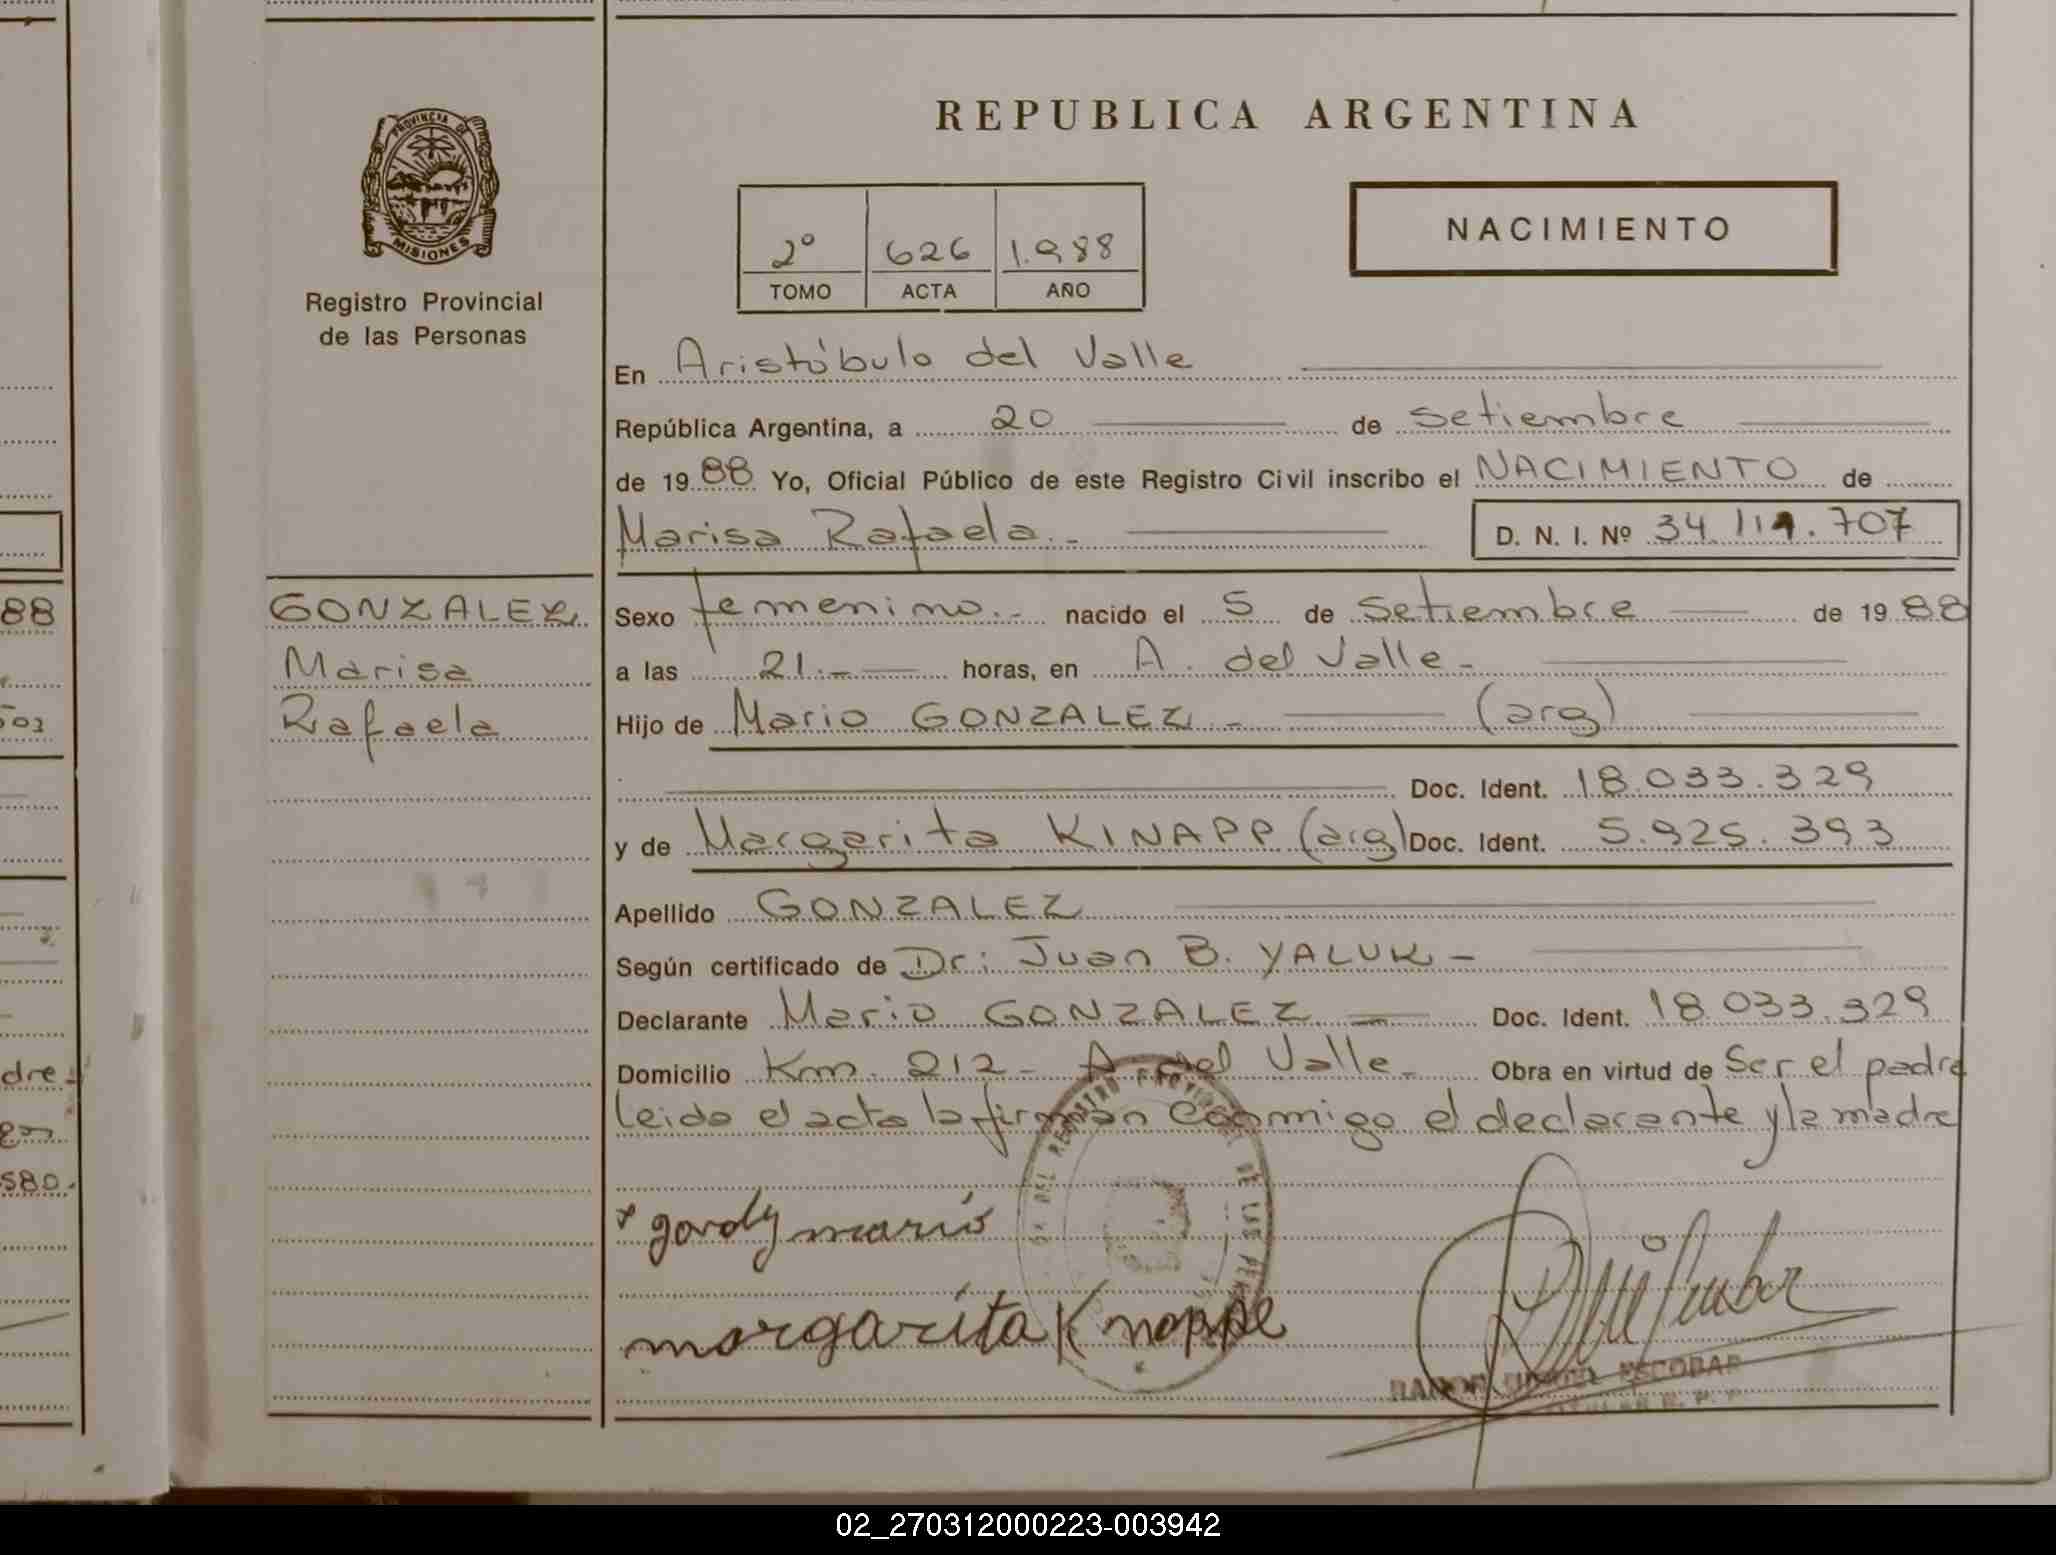 REPUBLICA ARGENTINA
PROVINCIA DE
MISIONES
Registro Provincial
de las Personas
2º 626 1.988
TOMO ACTA AÑO
NACIMIENTO
En Aristóbulo del Valle
República Argentina, a 20 de Setiembre
de 1988 Yo, Oficial Público de este Registro Civil inscribo el NACIMIENTO de
Marisa Rafaela.-
D. N. I. Nº 34.119.707
GONZALEZ
Marisa
Rafaela
Sexo femenino.- nacido el 5 de Setiembre de 1988
a las 21.- horas, en A. del Valle-
Hijo de Mario GONZALEZ.- (arg)
Doc. Ident. 18.033.329
y de Margarita KINAPP (arg) Doc. Ident. 5.925.393
Apellido GONZALEZ
Según certificado de Dr: Juan B. YALUK-
Declarante Mario GONZALEZ Doc. Ident. 18.033.329
Domicilio Km. 212- A del Valle- Obra en virtud de Ser el padre
leido el acta la firman conmigo el declarante y la madre
mario
margarita Knappe
ESCOBAR
88
503
dre-
580.
02_270312000223-003942